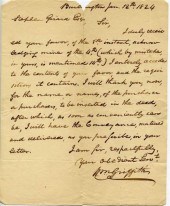 Burlington Jan 12th 1824
Stephn Girard Esq
Sir,
I duly received
your favor, of the 8th instant, acknow
ledging mine of the 6th (which, by mistake,
in yours, is mentioned 16th) I entirely accede
to the contents of your favor and the requi
sition it contains, I will thank you, now
for the name or names, of the purchaser
or purchasers, to be inserted in the deed,
after which, as soon as conveniently can
be, I will have the Conveyance, executed
and delivered as you prefer it in your
letter.
I am Sir, respectfully,
Your Obedient Servt
Wm Griffith